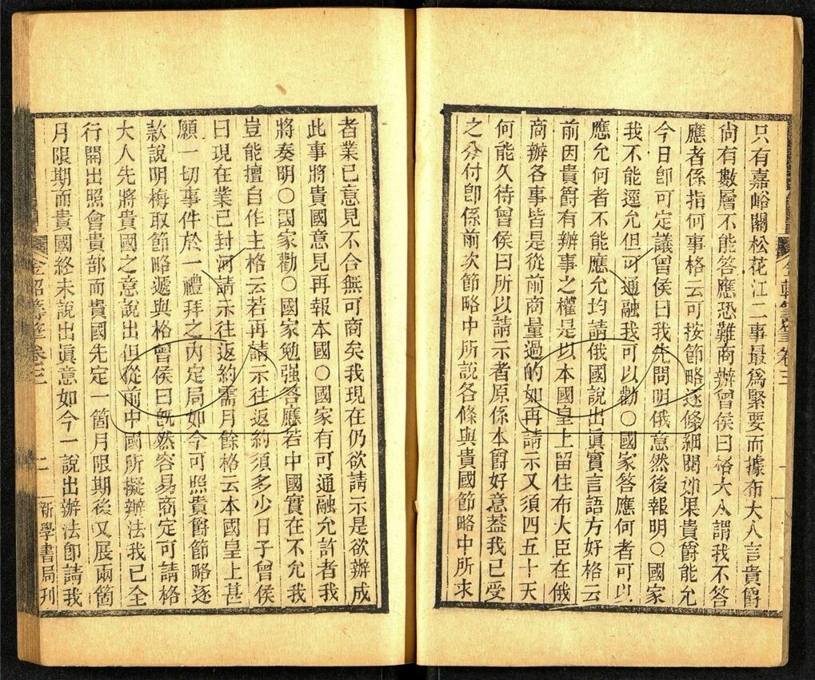 只有嘉峪關松花江二事最爲緊要而據布大人言貴爵
尙有數層不能答應恐難商辦曾侯曰格大人謂我不答
應者係指何事格云可按節略逐條細閱如果貴爵能允
今日卽可定議曾侯曰我先問明俄意然後報明〇國家
我不能逕允但可通融我可以勸〇國家答應何者可以
應允何者不能應允均請俄國說出眞實言語方好格云
前因貴爵有辦事之權是以本國皇上留住布大臣在俄
商辦各事皆是從前商量過的如再請示又須四五十天
何能久待曾侯曰所以請示者原係本爵好意蓋我已受
之分付卽係前次節略中所說各條與貴國節略中所求
者業已意見不合無可商矣我現在仍欲請示是欲辦成
此事將貴國意見再報本國〇國家有可通融允許者我
將奏明〇國家勸〇國家勉强答應若中國實在不允我
豈能擅自作主格云若再請示往返約須多少日子曾侯
曰現在業已封河請示往返約需月餘格云本國皇上甚
願一切事件於一禮拜之內定局如今可照貴爵節略逐
款說明梅取節略遞與格曾侯曰旣然容易商定可請格
大人先將貴國之意說出但從前中國所擬辦法我已全
行開出照會貴部而貴國先定一箇月限期後又展兩箇
月限期而貴國終未說出眞意如今一說出辦法卽請我
金軺籌筆 卷三
二
新學書局刊